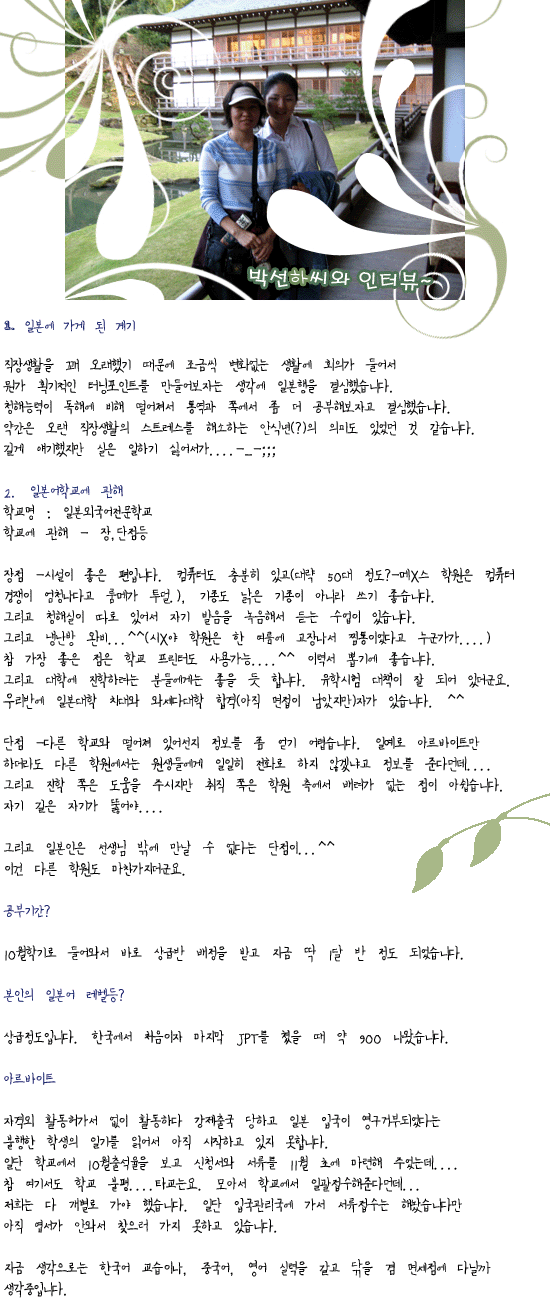 박선하씨와 인터뷰~
1. 일본에 가게 된 계기
직장생활을 꽤 오래했기 때문에 조금씩 변화없는 생활에 회의가 들어서
뭔가 획기적인 터닝포인트를 만들어보자는 생각에 일본행을 결심했습니다.
청해능력이 독해에 비해 떨어져서 통역과 쪽에서 좀 더 공부해보자고 결심했습니다.
약간은 오랜 직장생활의 스트레스를 해소하는 안식년(?)의 의미도 있었던 것 같습니다.
길게 얘기했지만 실은 일하기 싫어서가....-_-;;;
2. 일본어학교에 관해
학교명 : 일본외국어전문학교
학교에 관해 - 장,단점등
장점 -시설이 좋은 편입니다. 컴퓨터도 충분히 있고(대략 50대 정도?-메X스 학원은 컴퓨터
경쟁이 엄청나다고 룸메가 투덜.), 기종도 낡은 기종이 아니라 쓰기 좋습니다.
그리고 청해실이 따로 있어서 자기 발음을 녹음해서 듣는 수업이 있습니다.
그리고 냉난방 완비...^^(시X야 학원은 한 여름에 고장나서 찜통이었다고 누군가가....)
참 가장 좋은 점은 학교 프린터도 사용가능....^^ 이력서 뽑기에 좋습니다.
그리고 대학에 진학하려는 분들에게는 좋을 듯 합니다. 유학시험 대책이 잘 되어 있더군요.
우리반에 일본대학 치대와 와세다대학 합격(아직 면접이 남았지만)자가 있습니다. ^^
단점 -다른 학교와 떨어져 있어선지 정보를 좀 얻기 어렵습니다. 일례로 아르바이트만
하더라도 다른 학원에서는 원생들에게 일일히 전화로 하지 않겠냐고 정보를 준다던데....
그리고 진학 쪽은 도움을 주시지만 취직 쪽은 학원 측에서 배려가 없는 점이 아쉽습니다.
자기 길은 자기가 뚫어야....
그리고 일본인은 선생님 밖에 만날 수 없다는 단점이...^^
이건 다른 학원도 마찬가지더군요.
공부기간?
10월학기로 들어와서 바로 상급반 배정을 받고 지금 딱 1달 반 정도 되었습니다.
본인의 일본어 레벨등?
상급정도입니다. 한국에서 처음이자 마지막 JPT를 쳤을 때 약 900 나왔습니다.
아르바이트
자격외 활동허가서 없이 활동하다 강제출국 당하고 일본 입국이 영구거부되었다는
불행한 학생의 일기를 읽어서 아직 시작하고 있지 못합니다.
일단 학교에서 10월출석율을 보고 신청서와 서류를 11월 초에 마련해 주었는데....
참 여기서도 학교 불평....타교는요. 모아서 학교에서 일괄접수해준다던데...
저희는 다 개별로 가야 했습니다. 일단 입국관리국에 가서 서류접수는 해놨습니다만
아직 엽서가 안와서 찾으러 가지 못하고 있습니다.
지금 생각으로는 한국어 교습이나, 중국어, 영어 실력을 갈고 닦을 겸 면세점에 다닐까
생각중입니다.